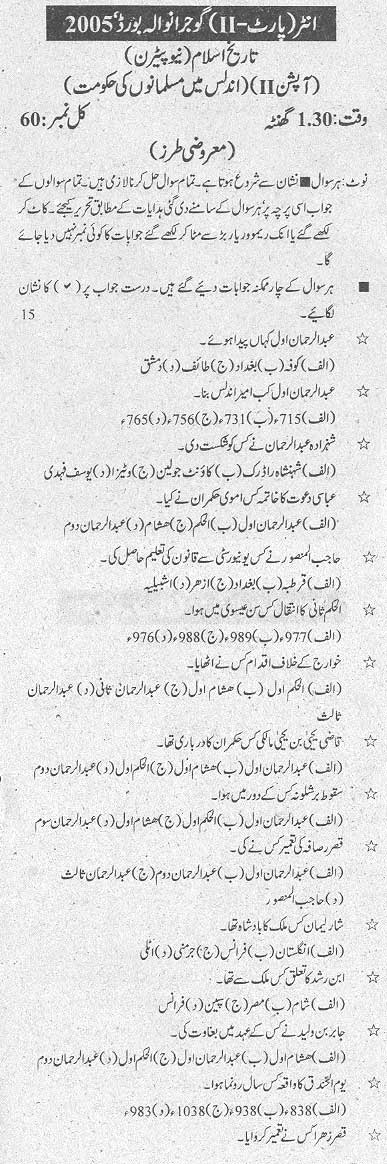 انٹر (پارٹ-II) گوجرانوالہ بورڈ، 2005
تاریخ اسلام (نیو پیٹرن)
(آپشن II) (اندلس میں مسلمانوں کی حکومت)
وقت: 1.30 گھنٹہ کل نمبر: 60
(معروضی طرز)
نوٹ: ہر سوال ■ نشان سے شروع ہوتا ہے۔ تمام سوال حل کرنا لازمی ہیں۔ تمام سوالوں کے
جواب اسی پرچہ پر، ہر سوال کے سامنے دی گئی ہدایات کے مطابق تحریر کیجئے۔ کاٹ کر
لکھے گئے یا انک ریموور یا ربڑ سے مٹا کر لکھے گئے جوابات کا کوئی نمبر نہیں دیا جائے
گا۔
■ ہر سوال کے چار ممکنہ جوابات دیئے گئے ہیں۔ درست جواب پر (✓) کا نشان
لگائیے۔ 15
☆ عبدالرحمان اول کہاں پیدا ہوئے۔
(الف) کوفہ (ب) بغداد (ج) طائف (د) دمشق
☆ عبدالرحمان اول کب امیر اندلس بنا۔
(الف) 715ء (ب) 731ء (ج) 756ء (د) 765ء
☆ شہزادہ عبدالرحمان نے کس کو شکست دی۔
(الف) شہنشاہ راڈرک (ب) کاؤنٹ جولین (ج) وٹیزا (د) یوسف فہدی
☆ عباسی دعوت کا خاتمہ کس اموی حکمران نے کیا۔
(الف) عبدالرحمان اول (ب) الحکم (ج) ھشام (د) عبدالرحمان دوم
☆ حاجب المنصور نے کس یونیورسٹی سے قانون کی تعلیم حاصل کی۔
(الف) قرطبہ (ب) بغداد (ج) ازھر (د) اشبیلیہ
☆ الحکم ثانی کا انتقال کس سن عیسوی میں ہوا۔
(الف) 977ء (ب) 989ء (ج) 988ء (د) 976ء
☆ خوارج کے خلاف اقدام کس نے اٹھایا۔
(الف) الحکم اول (ب) ھشام اول (ج) عبدالرحمان ثانی (د) عبدالرحمان
ثالث
☆ قاضی یحییٰ بن یحییٰ مالکی کس حکمران کا درباری تھا۔
(الف) عبدالرحمان اول (ب) ھشام اول (ج) الحکم اول (د) عبدالرحمان دوم
☆ سقوط برشلونہ کس کے دور میں ہوا۔
(الف) عبدالرحمان اول (ب) الحکم اول (ج) ھشام اول (د) عبدالرحمان سوم
☆ قصر رصافہ کی تعمیر کس نے کی۔
(الف) عبدالرحمان اول (ب) عبدالرحمان دوم (ج) عبدالرحمان ثالث
(د) حاجب المنصور
☆ شارلیمان کس ملک کا بادشاہ تھا۔
(الف) انگلستان (ب) فرانس (ج) جرمنی (د) اٹلی
☆ ابن رشد کا تعلق کس ملک سے تھا۔
(الف) شام (ب) مصر (ج) سپین (د) فرانس
☆ جابر بن ولید نے کس کے عہد میں بغاوت کی۔
(الف) ھشام اول (ب) عبدالرحمان اول (ج) الحکم اول (د) عبدالرحمان دوم
☆ یوم الخندق کا واقعہ کس سال رونما ہوا۔
(الف) 838ء (ب) 938ء (ج) 1038ء (د) 983ء
☆ قصر زھرا کس نے تعمیر کروایا۔